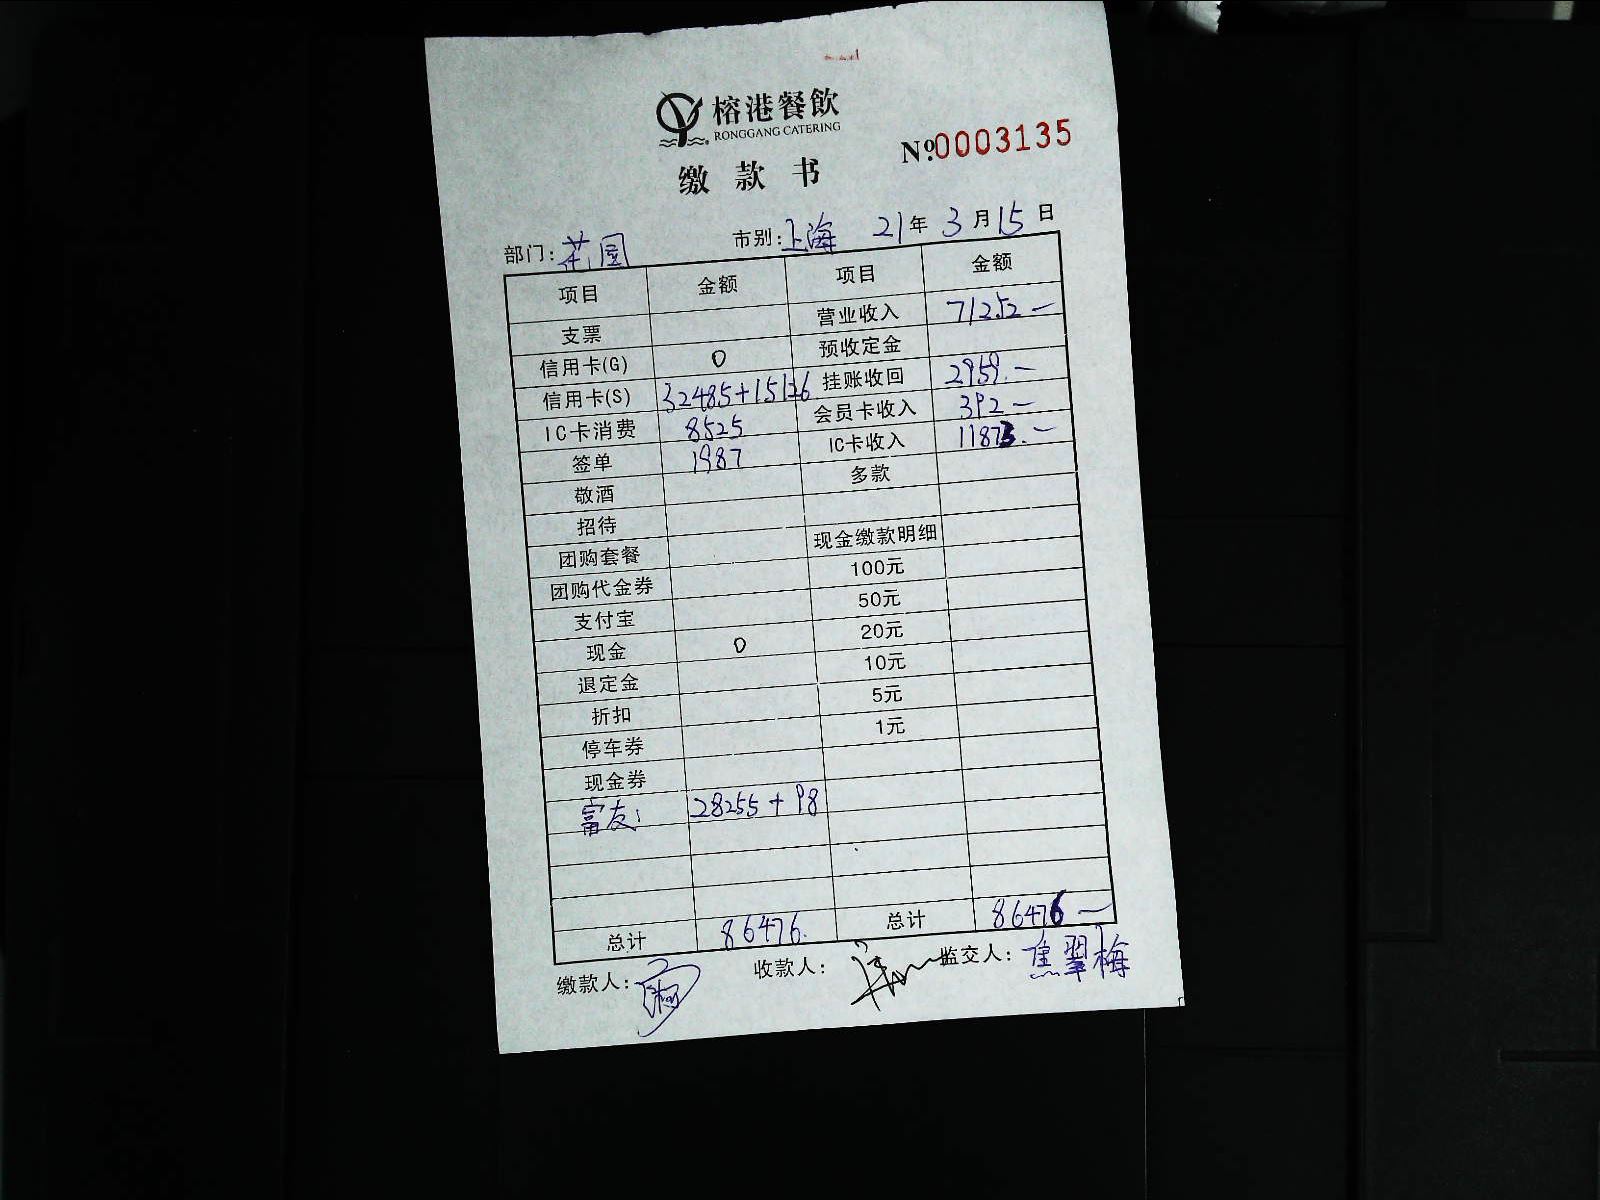 榕港餐飲
RONGGANG CATERING
缴款书
№0003135
部门: 花园 市别: 上海 21年3月15日
项目 金额 项目 金额
支票 营业收入 71252—
信用卡(G) 0 预收定金
信用卡(S) 32485+15126 挂账收回 2959.—
IC卡消费 8525 会员卡收入 392—
签单 1987 IC卡收入 11873.—
敬酒 多款
招待
团购套餐 现金缴款明细
团购代金券 100元
支付宝 50元
现金 0 20元
退定金 10元
折扣 5元
停车券 1元
现金券
富友: 28255+98
总计 86476. 总计 86476—
缴款人: 收款人: 监交人: 焦翠梅